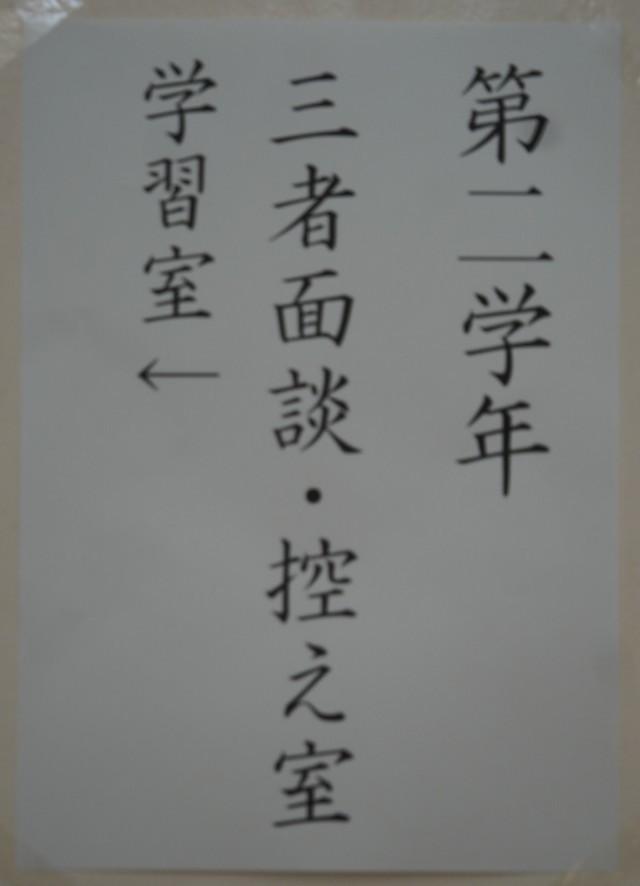 第二学年
三者面談・控え室
学習室←